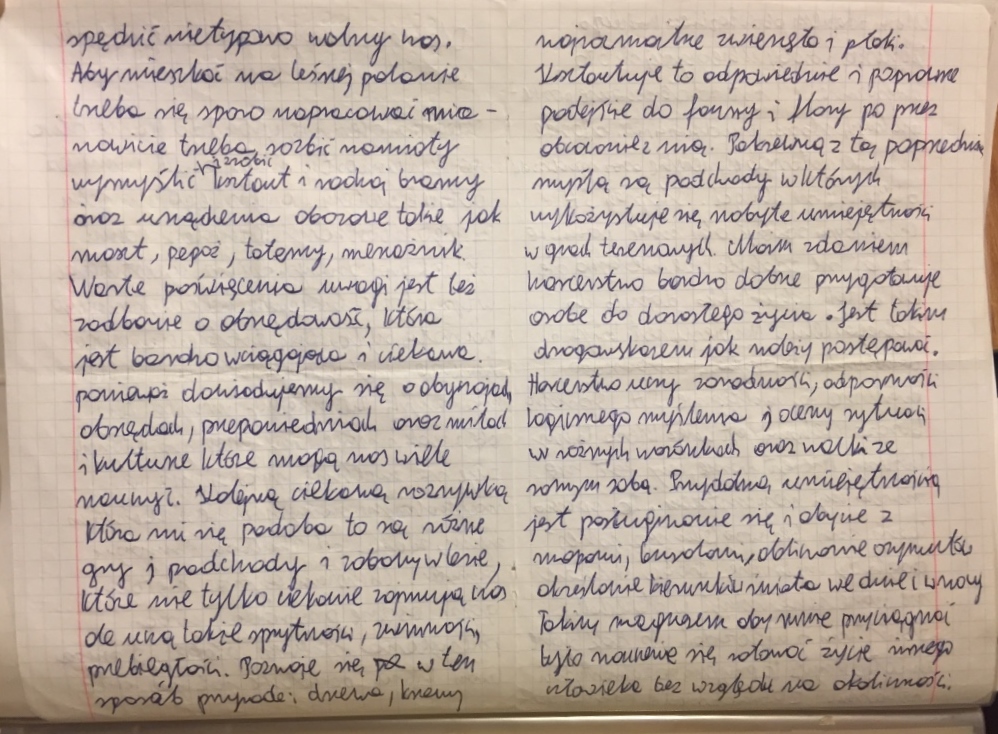 spędzić nietypowo wolny czas.
Aby mieszkać na leśnej polanie
trzeba się sporo napracować mia-
nowicie trzeba rozbić namioty
wymyślić i zrobić kształt i rodzaj bramy
oraz urządzenia obozowe takie jak
maszt, pegaż, totemy, menażnik.
Warte poświęcenia uwagi jest też
zadbanie o obrzędowość, która
jest bardzo wciągająca i ciekawa.
ponieważ dowiadujemy się o obyczajach
obrzędach, przepowiedniach oraz mitach
i kulturze które mogą nas wiele
nauczyć. Kolejną ciekawą rozrywką
która mi się podoba to są różne
gry i podchody i zabawy w lesie,
które nie tylko ciekawie zajmują czas
ale uczą także sprytności, zwinności,
przebiegłości. Poznaje się w ten
sposób przyrodę: drzewa, krzewy
najrozmaitsze zwierzęta i ptaki.
Kształtuje to odpowiednie i poprawne
podejście do fauny i flory po przez
obcowanie z nią. Pokrewną z tą poprzednią
myślą są podchody w których
wykożystuje się nabyte umiejętności
w grach terenowych. Moim zdaniem
harcerstwo bardzo dobrze przygotowuje
osobe do dorosłego życia. Jest takim
drogowskazem jak należy postępować.
Harcerstwo uczy zaradności, odporności
logicznego myślenia i oceny sytuacji
w różnych warunkach oraz walki ze
samym sobą. Przydatną umiejętnością
jest posługiwanie się i obycie z
mapami, busolami, obliczanie azymutów
określanie kierunków świata we dnie i w nocy
Takim magnesem aby mnie przyciągnąć
było nauczenie się ratować życie innego
człowieka bez względu na okoliczności.